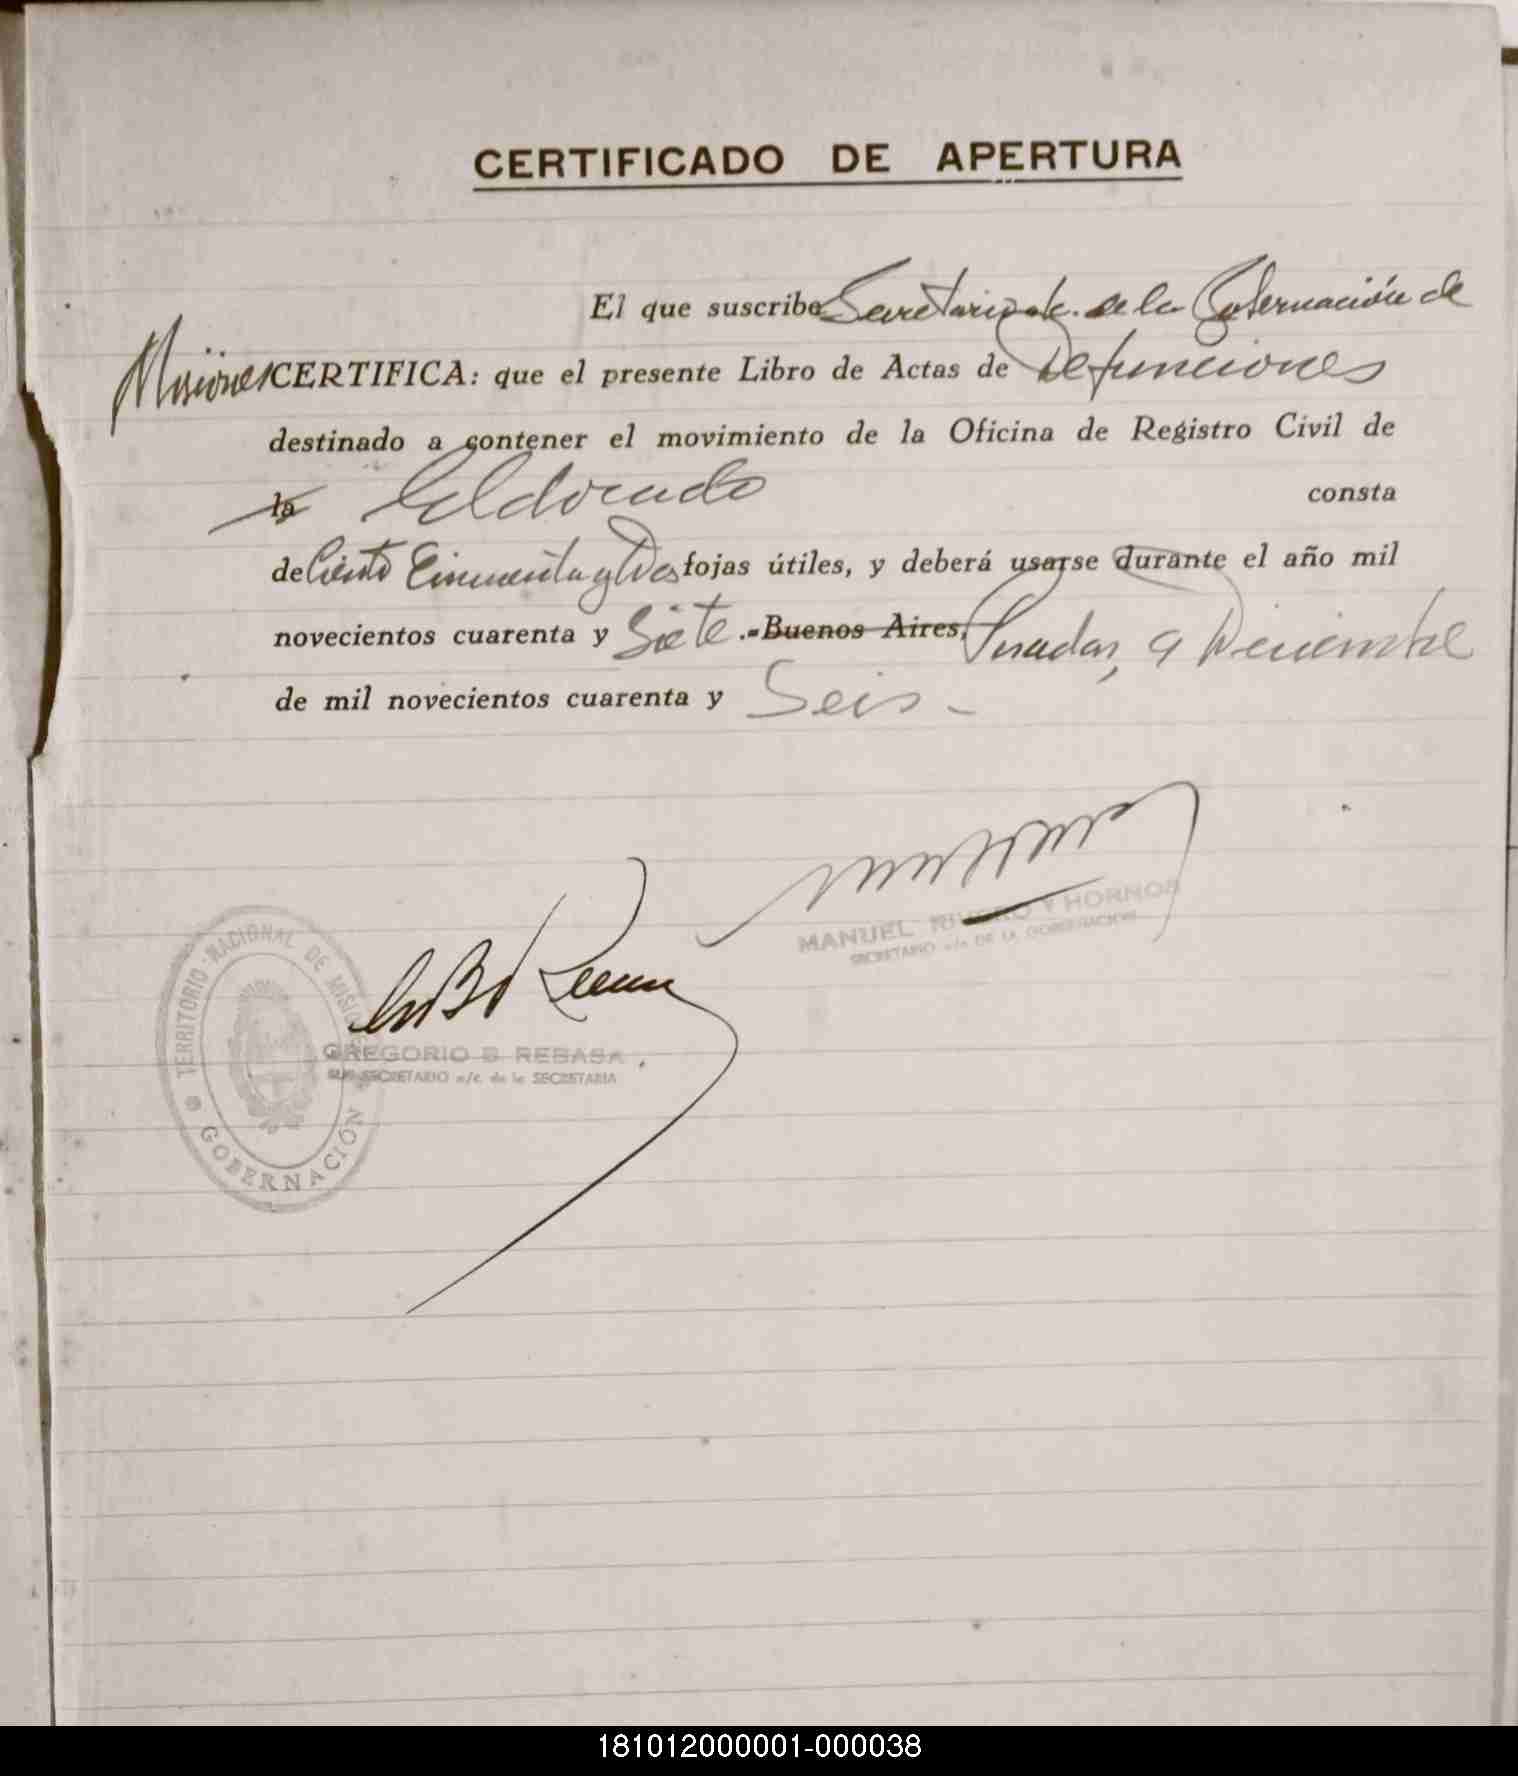 CERTIFICADO DE APERTURA
El que suscribe Secretario de la Gobernación de
Misiones CERTIFICA: que el presente Libro de Actas de Defunciones
destinado a contener el movimiento de la Oficina de Registro Civil de
la Eldorado consta
de Ciento Cincuenta y Dos fojas útiles, y deberá usarse durante el año mil
novecientos cuarenta y Siete .-Buenos Aires, Posadas, 9 Diciembre
de mil novecientos cuarenta y Seis -
MANUEL RIVERO Y HORNOS
SECRETARIO a/c DE LA GOBERNACION
TERRITORIO NACIONAL DE MISIONES
GOBERNACIÓN
GREGORIO B REBASA
SUB SECRETARIO a/c. de la SECRETARIA
181012000001-000038